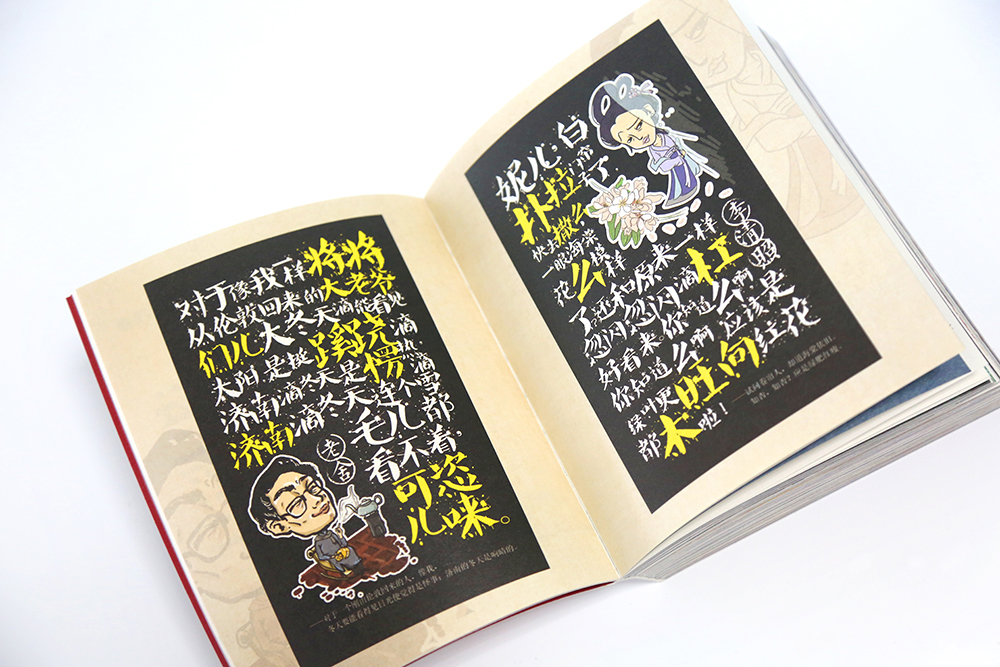 对于像我一样将将
从伦敦回来的大老爷
们儿大冬天滴能看见
太阳是越蹊跷滴
济南滴冬天是愣热滴
济南滴冬天连个雪
毛儿都
看不着，
可恣
儿咪。
老舍
——对于一个刚由伦敦回来的人，像我，
冬天要能看得见日光便觉得是怪事；济南的冬天是响晴的。
妮儿，白
扑拉
快去撒么
一眼海棠
花么模样
了还和原来一样
忽闪忽闪滴杠
好看来。你知道么啊
你知道么啊，应该是
绿叶更木旺向红花
都木啦！
李清照
——试问卷帘人，却道海棠依旧。
知否，知否？应是绿肥红瘦。